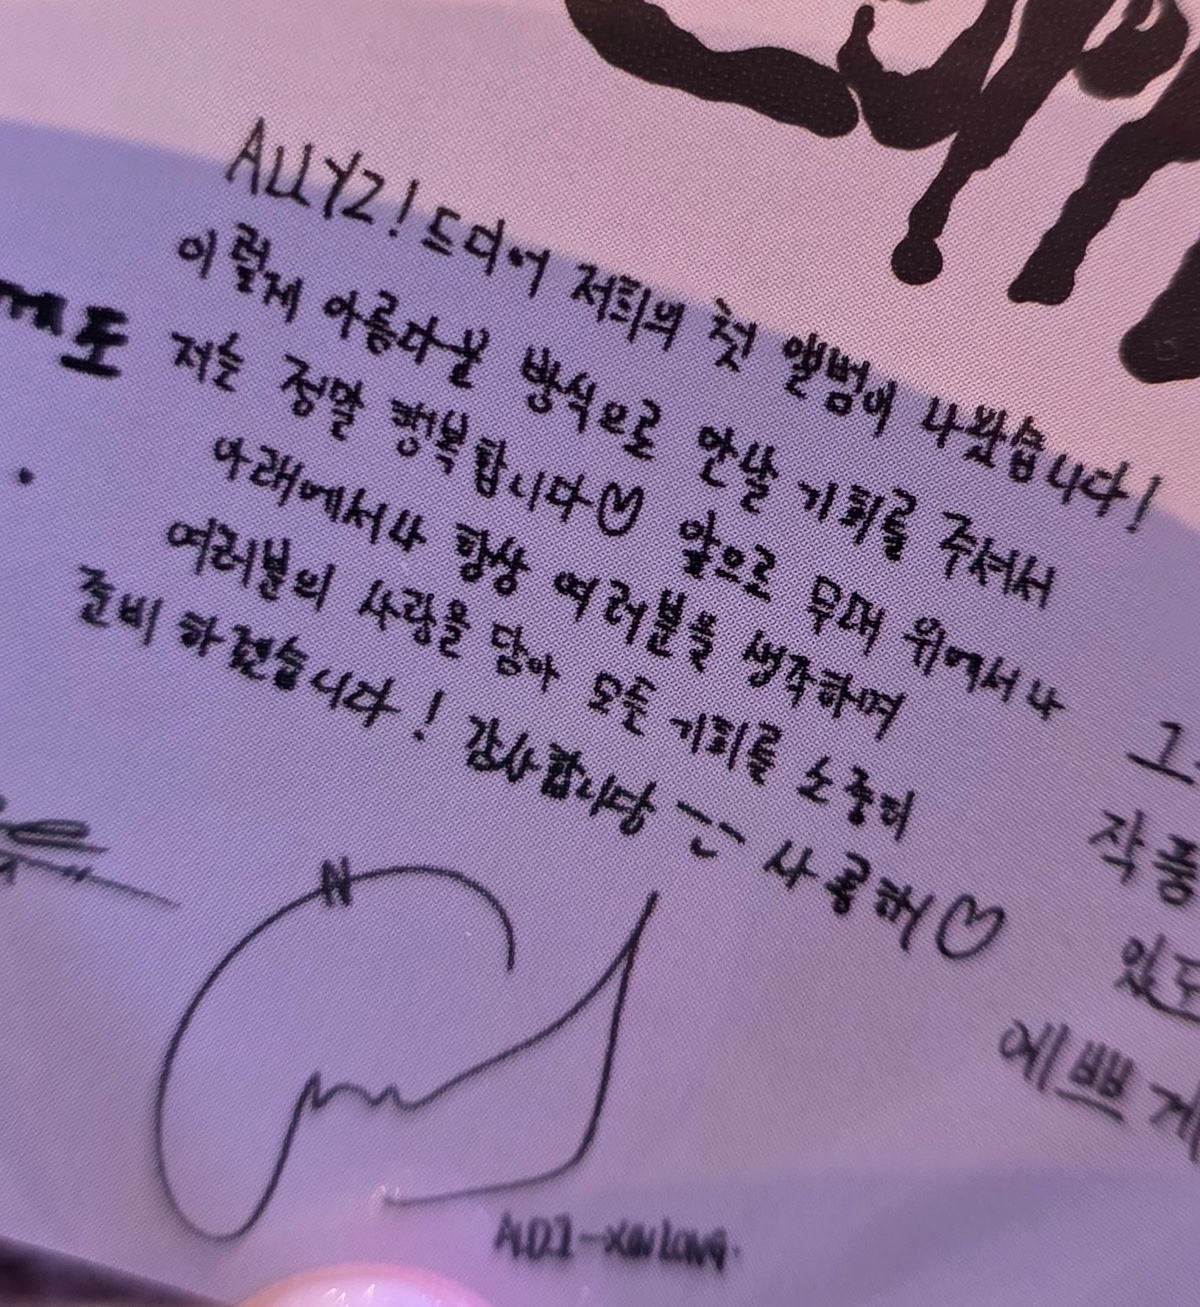 ALLYZ! 드디어 저희의 첫 앨범이 나왔습니다!
이렇게 아름다운 방식으로 만날 기회를 주셔서
저는 정말 행복합니다♡ 앞으로 무대 위에서나
아래에서나 항상 여러분들 생각하며
여러분의 사랑을 담아 모든 기회를 소중히
준비 하겠습니다! 감사합니당 ~~ 사룽해♡
그
작품
있도
예쁘게